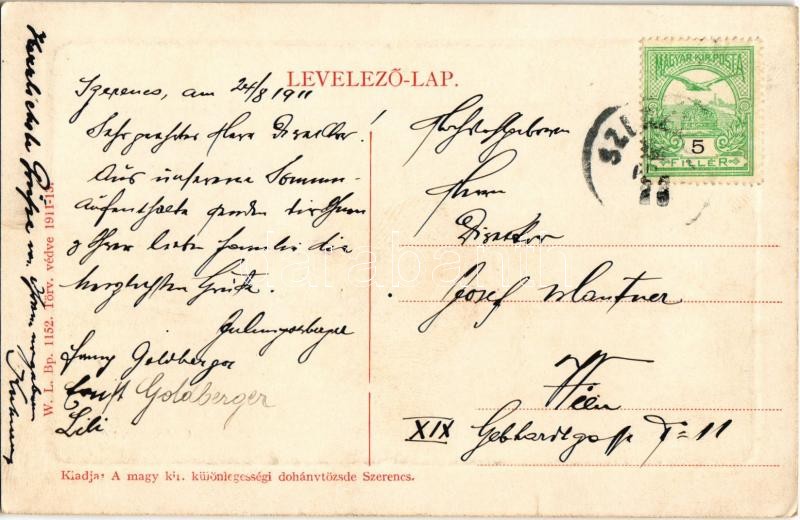 LEVELEZŐ-LAP.
MAGYAR KIR. POSTA
5
FILLÉR
Szerencs, am 24/8 1911
Sehr geehrter Herr Direktor!
Aus unserem Sommer-
aufenthalte senden wir Ihnen
& Ihrer lieben Familie die
herzlichsten Grüße.
Goldberger
Ernst Goldberger
Lili
Herzlichste Grüße von Ihrem
Hochwohlgeboren
Herrn
Direktor
Josef Mautner
Wien
XIX Gebhardtgasse 11
W. L. Bp. 1152. Törv. védve 1911-13.
Kiadja: A magy kir. különlegességi dohánytőzsde Szerencs.